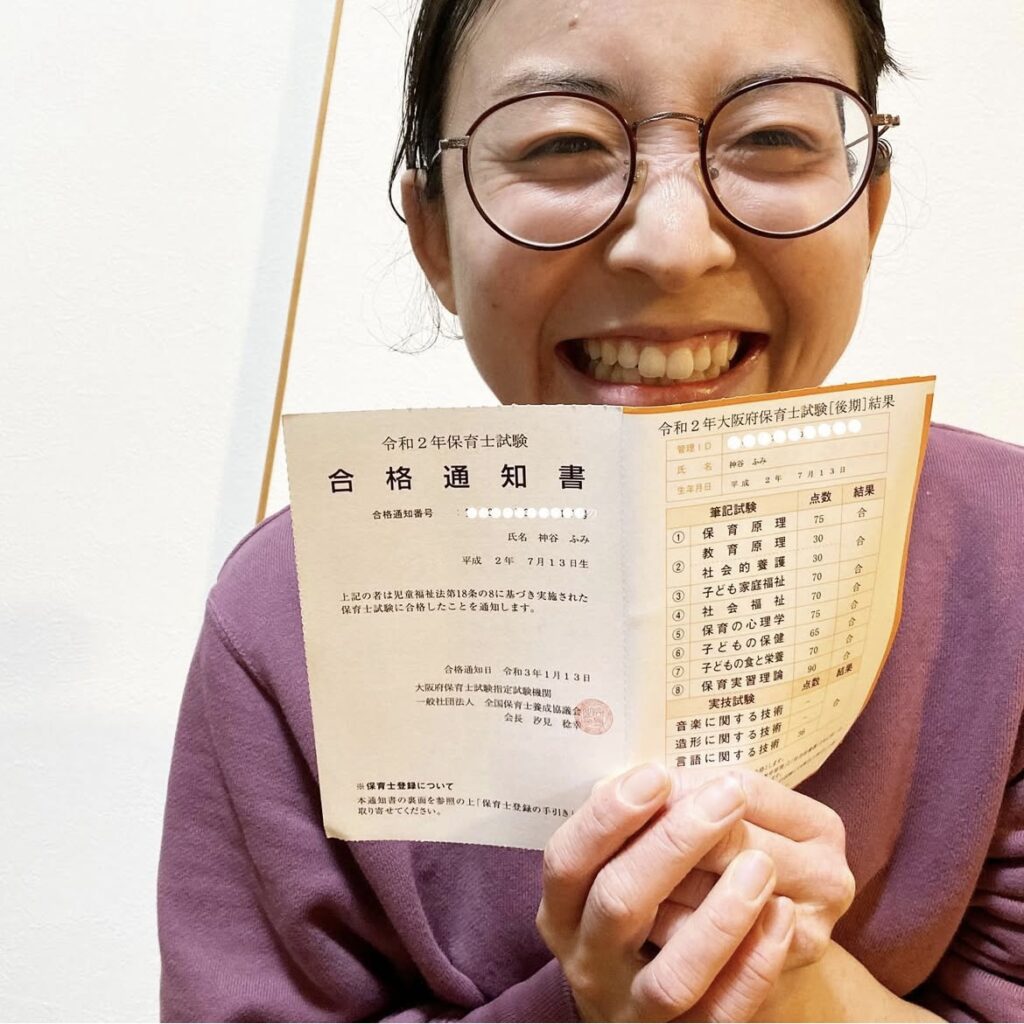 令和2年保育士試験
合格通知書
合格通知番号 :
氏名 神谷 ふみ
平成 2年 7月13日生
上記の者は児童福祉法第18条の8に基づき実施された
保育士試験に合格したことを通知します。
合格通知日 令和3年1月13日
大阪府保育士試験指定試験機関
一般社団法人 全国保育士養成協議会
会長 汐見 稔幸
※保育士登録について
本通知書の裏面を参照の上「保育士登録の手引き
取り寄せてください。
令和2年大阪府保育士試験[後期]結果
管理ID
氏名 神谷 ふみ
生年月日 平成 2年 7月13日
筆記試験 点数 結果
① 保育原理 75 合
② 教育原理 30 合
社会的養護 30
③ 子ども家庭福祉 70 合
④ 社会福祉 70 合
⑤ 保育の心理学 75 合
⑥ 子どもの保健 65 合
⑦ 子どもの食と栄養 70 合
⑧ 保育実習理論 90 合
実技試験 点数 結果
音楽に関する技術 -
造形に関する技術 - 合
言語に関する技術